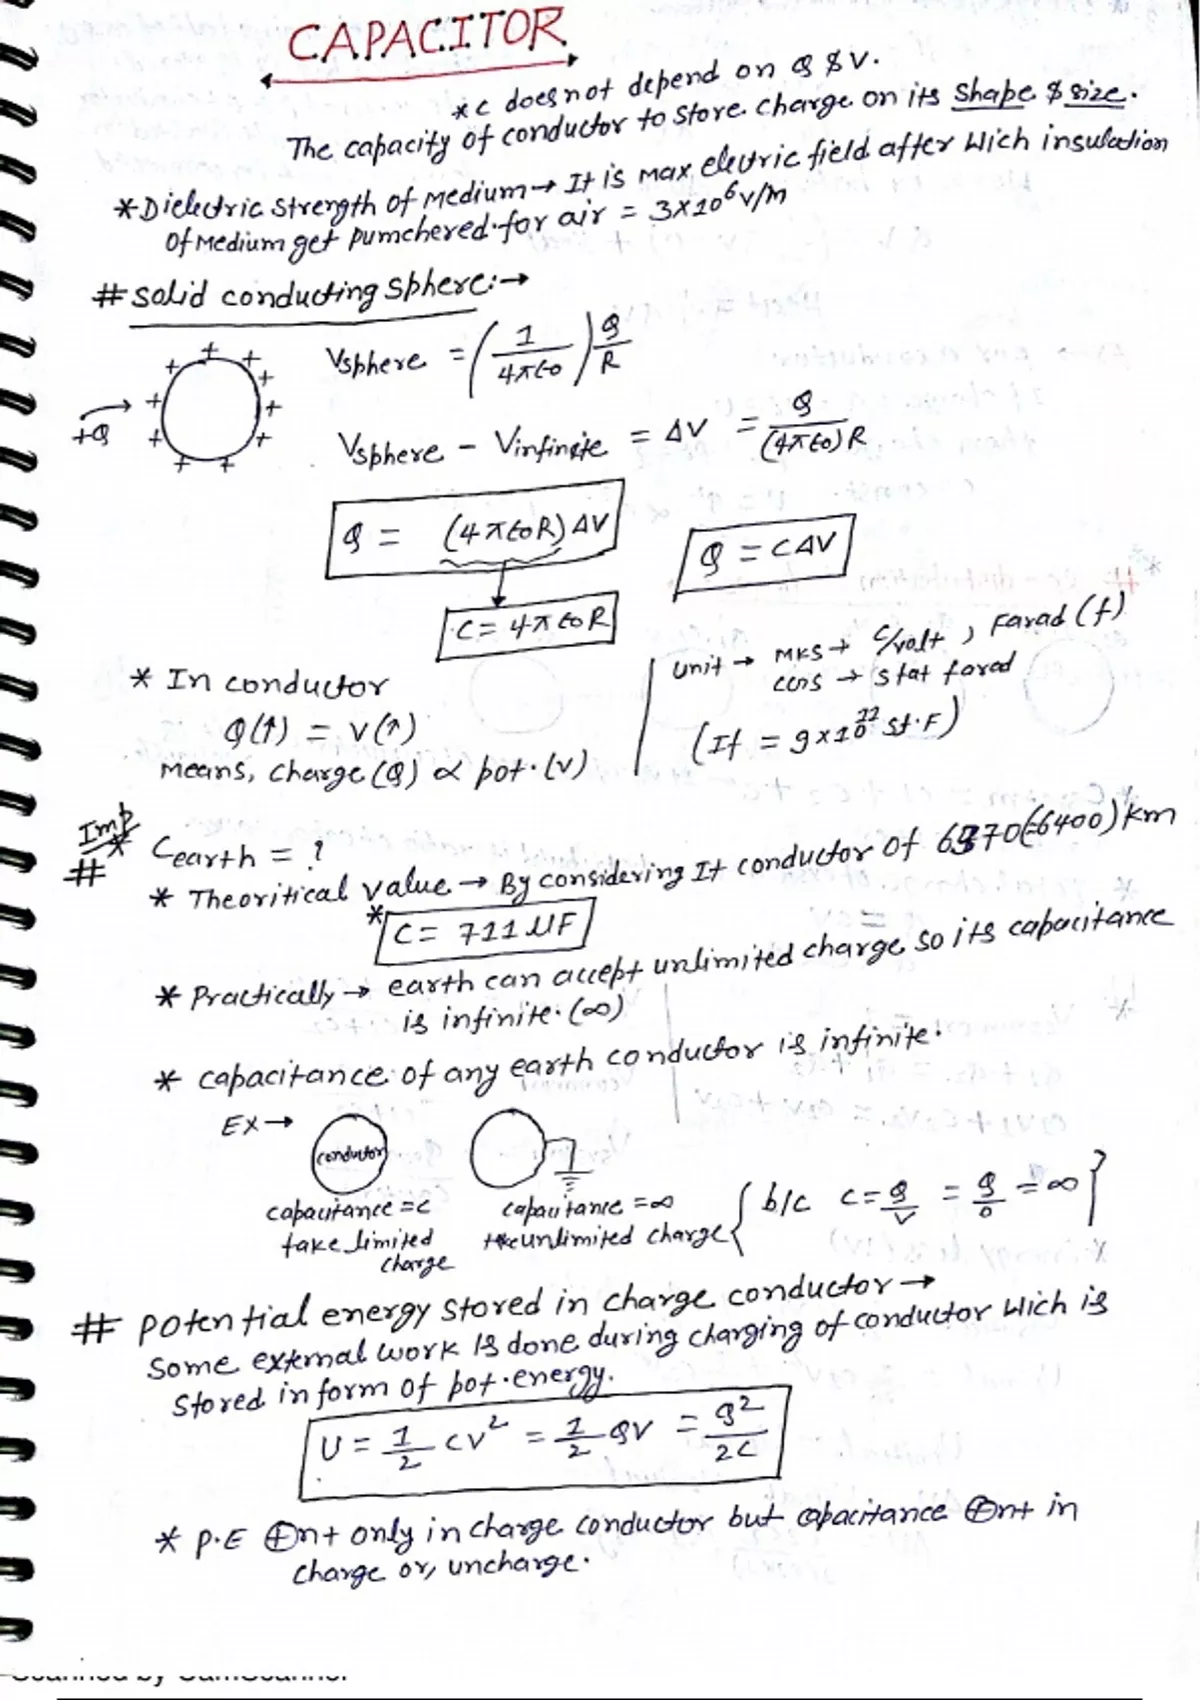 CAPACITOR
*C does not depend on Q & V.
The capacity of conductor to store charge on its shape & size.
*Dielectric strength of medium → It is max electric field after wich insulation
of Medium get pumchered. for air = 3×10⁶ v/m
# solid conducting sphere:→
+Q
Vsphere = (1/4πε0) Q/R
Vsphere - Vinfinite = ΔV = Q/(4πε0)R
Q = (4πε0R) ΔV
Q = CΔV
C = 4πε0R
unit → MKS → C/volt, Farad (f)
CGS → stat farad
(1f = 9×10¹¹ st.F)
* In conductor
Q(↑) = V(↑)
means, charge (Q) ∝ pot. (v)
Imp
# * Cearth = ?
* Theoritical value → By considering It conductor of 6370(≈6400) km
* C = 711 μF
* Practically → earth can accept unlimited charge so its capacitance
is infinite. (∞)
* capacitance of any earth conductor is infinite.
EX →
conductor
capacitance = c
take limited
charge
capacitance = ∞
take unlimited charge
{ b/c C = Q/V = Q/0 = ∞ }
# potential energy stored in charge conductor →
Some external work is done during charging of conductor wich is
stored in form of pot. energy.
U = 1/2 CV² = 1/2 QV = Q²/2C
* P.E ⊕nt only in charge conductor but capacitance ⊕nt in
charge or, uncharge.
Scanned by CamScanner